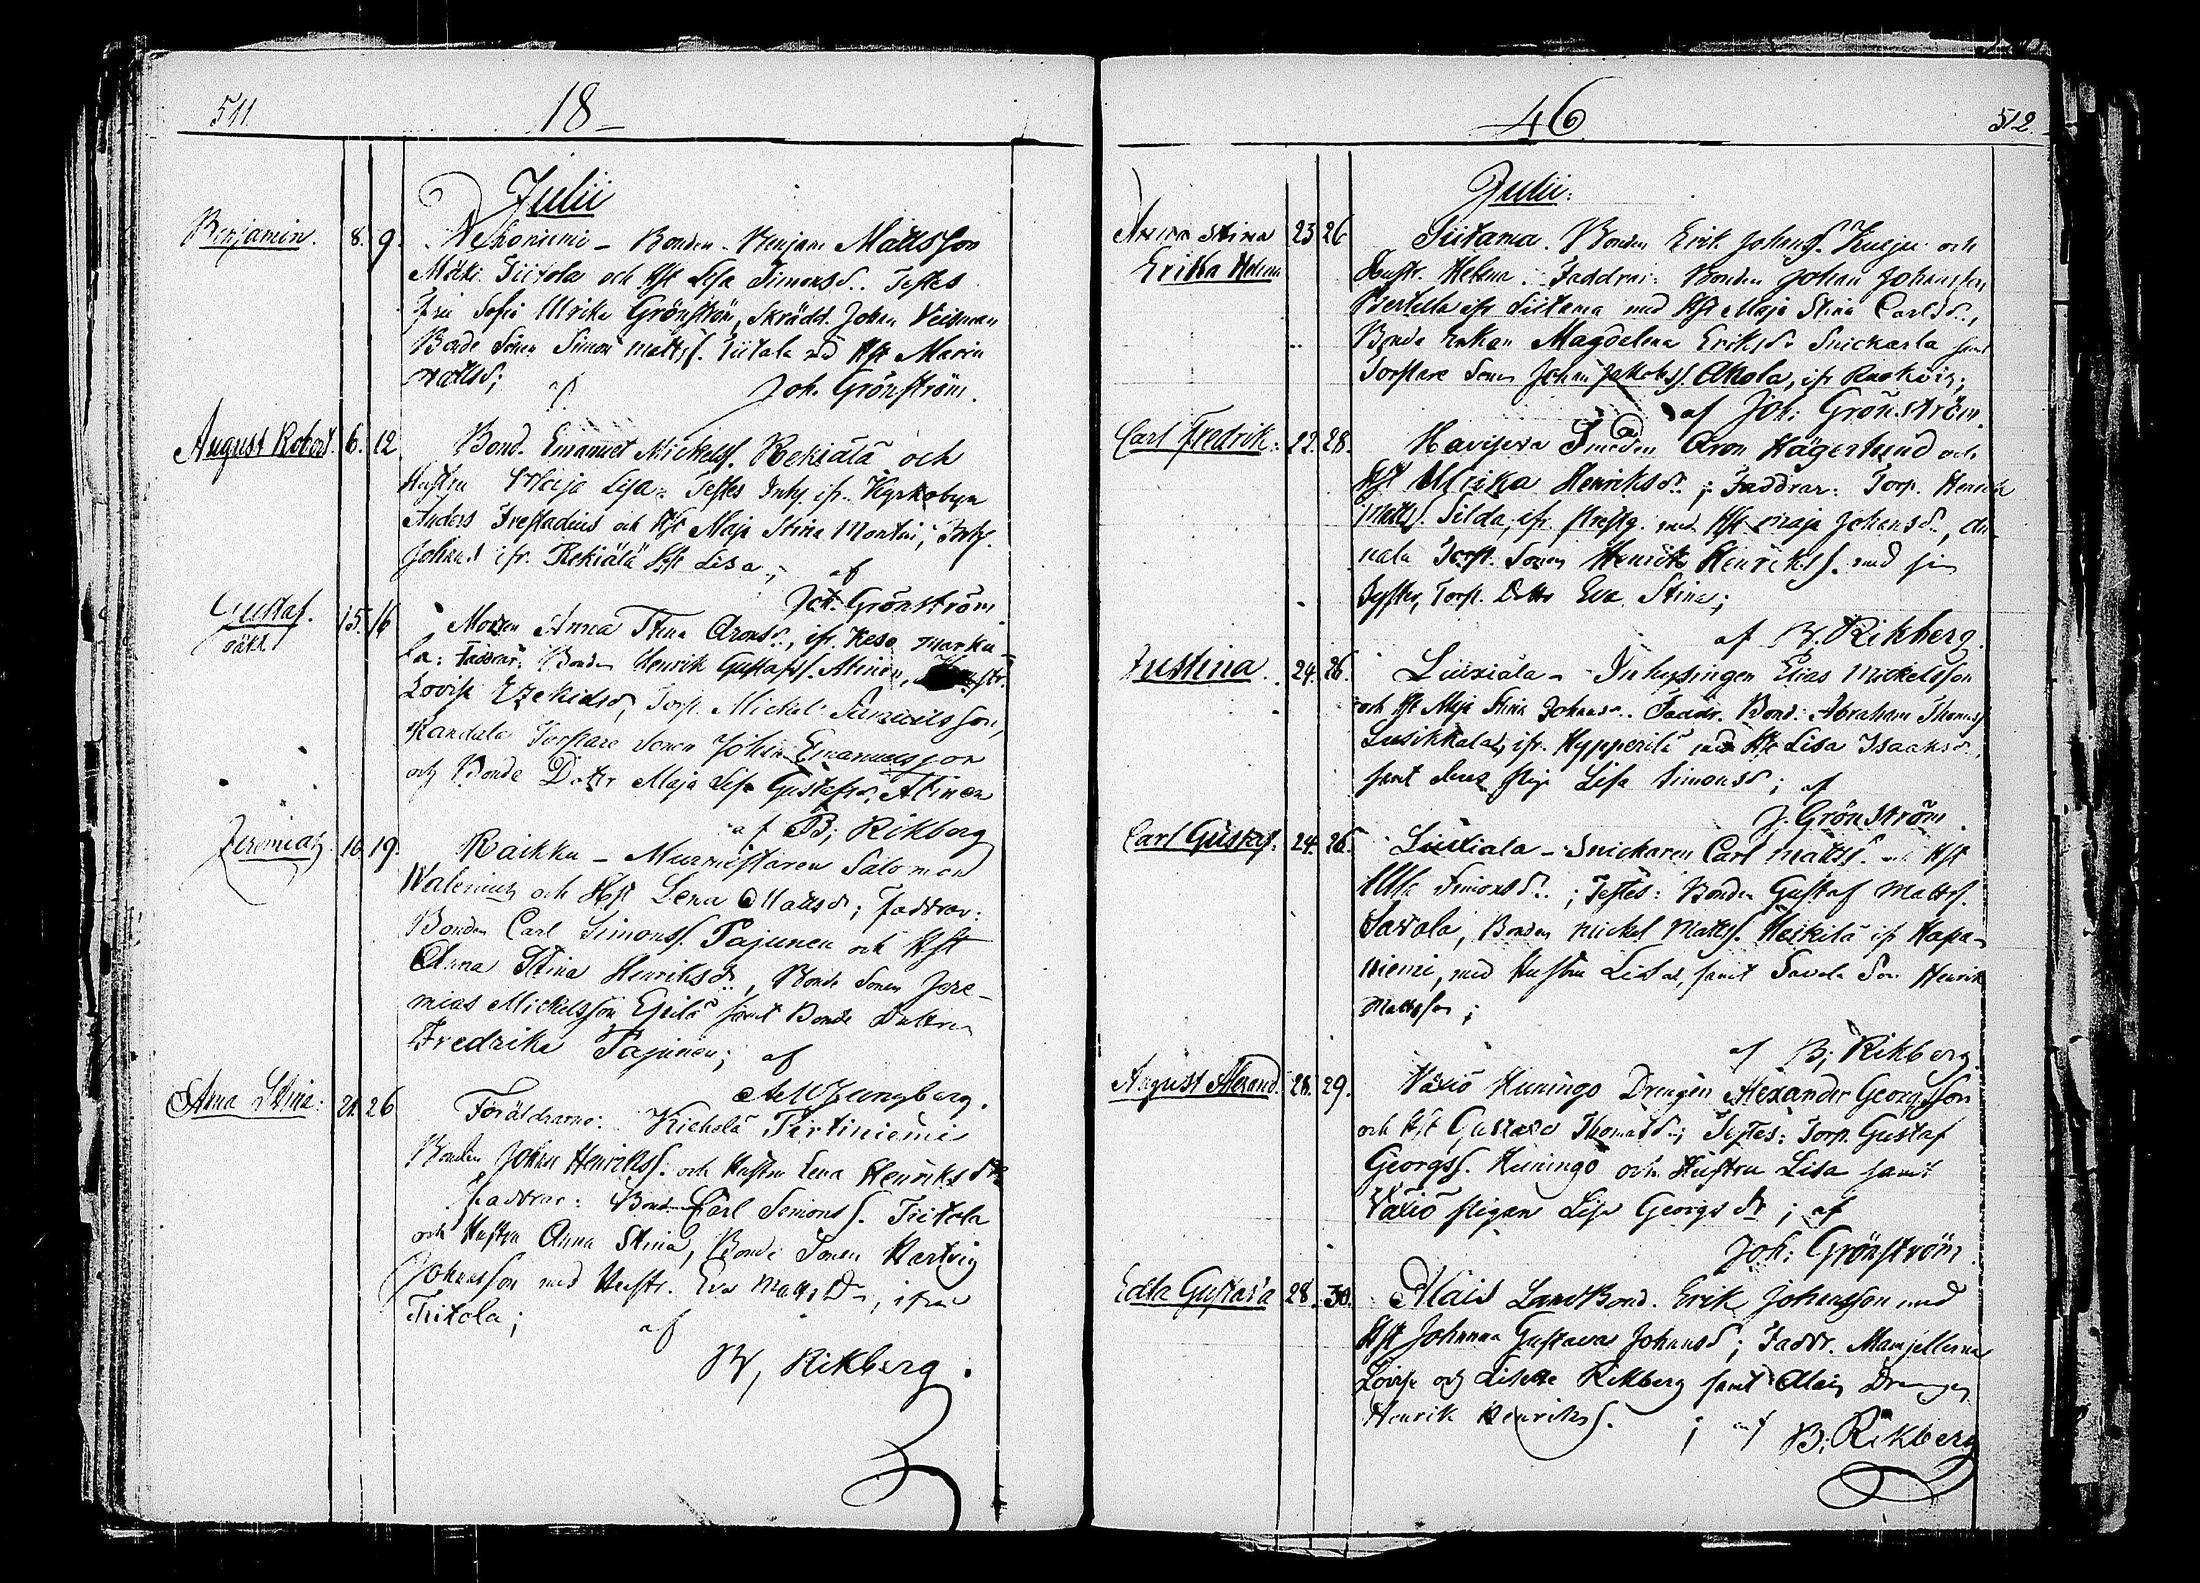 511.
18
Julii
Benjamin. 8. 9. Bonden Benjam Mattsson
Mäki Tiitola och Hst Lisa Simonsd. Testes
Sofia Ulrika Grönström, Skrädd. Johan Veisman
Bonde Sonen Simon Mattss. Tiitola Hst Maria
Mattsd;
af Joh. Grönström.
August Robert. 6. 12 Bond. Emanuel Mickelss. Rekiälä och
Hustru Maja Lisa. Testes Inhs. ifr. Kyrkobyn
Anders Frestadius och Hst Maja Stina Montin, Inhs.
Johans ifr. Rekiälä Hst Lisa;
af
Joh. Grönström
Gustaf. 15. 16
oäkt
Anna Stina Aronsd., ifr. Keso Marku-
la: Faddrar: Bonden Henrik Gustafss. Alinen,
Lovisa Ezekielsd, Torp. Mickel Samuelsson,
Torpare Sonen Johan Emanuelsson
och Bonde Dottr Maja Lisa Gustafsd. Alinen
af B; Rikberg
Jeremias. 16. 19. Raikku – Murmästaren Salomon
Walenius och Hst Lena Mattsdr; Faddrar:
Bonden Carl Simonss. Pajunen och Hst
Anna Stina Henriksdr., Bonde Sonen Jere-
mias Mickelsson Eijilä samt Bonde Dottren
Fredrika Pajunen; af
A W Ljungberg.
Anna Stina: 21. 26 Föräldrarne: Kichelä Pertiniemi
Bonden Johan Henrikss. och Hustru Lena Henriksdr
Faddrar: Bond Carl Simonss. Tiitola
och Hustru Anna Stina, Bonde Sonen Hartvig
Johansson med Hustr. Eva Mattsdr, ifrån
Tiitola;
af
B, Rikberg.
46
512.
Julii:
Anna Stina 23 26 Siitama. Bonden Erik Johanss. och
Erika Helena
Hustr. Helena. Faddrar: Bonden Johan Johansson
Perttula ifr Siitama med Hst Maja Stina Carlsd.,
Bonde Enkan Magdelena Eriksd. Snickarla samt
Torpare Sonen Johan Jakobss. Ahola, ifr
af Joh: Grönström.
Carl Fredrik: 22. 28. Haviseva Smeden Aron Hägerlund och
Hst Ulrika Henriksdr; Faddrar: Torp. Henrik
Mattss. Silda, ifr. med Hst Maja Johansd., An-
nala Torp. Sonen Henrik Henrikss. med sin
Syster, Torp. Dottr Eva Stina;
af B. Rikberg.
Justina. 24. 26. Liuxiala – Inhysingen Elias Mickelsson
och Hst Maja Stina Johansd. Faddr. Bond. Abraham Thomass
Lusikkala, ifr. Hypperilä med Hst Lisa Isaaksd.
samt pigan Lisa Simonsd; af
J. Grönström.
Carl Gustaf. 24. 26. Liuxiala – Snickaren Carl Mattss. och Hst
Ulla Simonsdr.; Testes: Bonden Gustaf Mattss.
Savola, Bonden Mickel Mattss. Heikilä ifr Hapa-
niemi, med Hustru Lisa, samt Savola Son Henrik
Mattsson;
af B; Rikberg.
August Alexand. 28. 29. Växiö Huningo Drengen Alexander Georgsson
och Hst Gustava Thomasdr; Testes: Torp. Gustaf
Georgss. Huningo och Hustru Lisa samt
Växiö pigan Lisa Georgsdr; af
Joh: Grönström.
Edla Gustava 28. 30. Alais LandBond. Erik Johansson med
Hst Johanna Gustava Johansd; Faddr. Mamsellerna
Lovisa och Lisette Rikberg samt Alais Drengen
Henrik Henrikss.
; af B; Rikberg